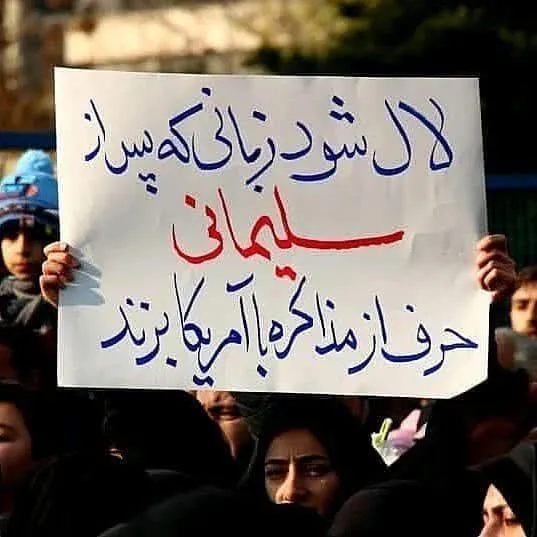 لال شود زبانی که پس از
سلیمانی
حرف از مذاکره با آمریکا بزند